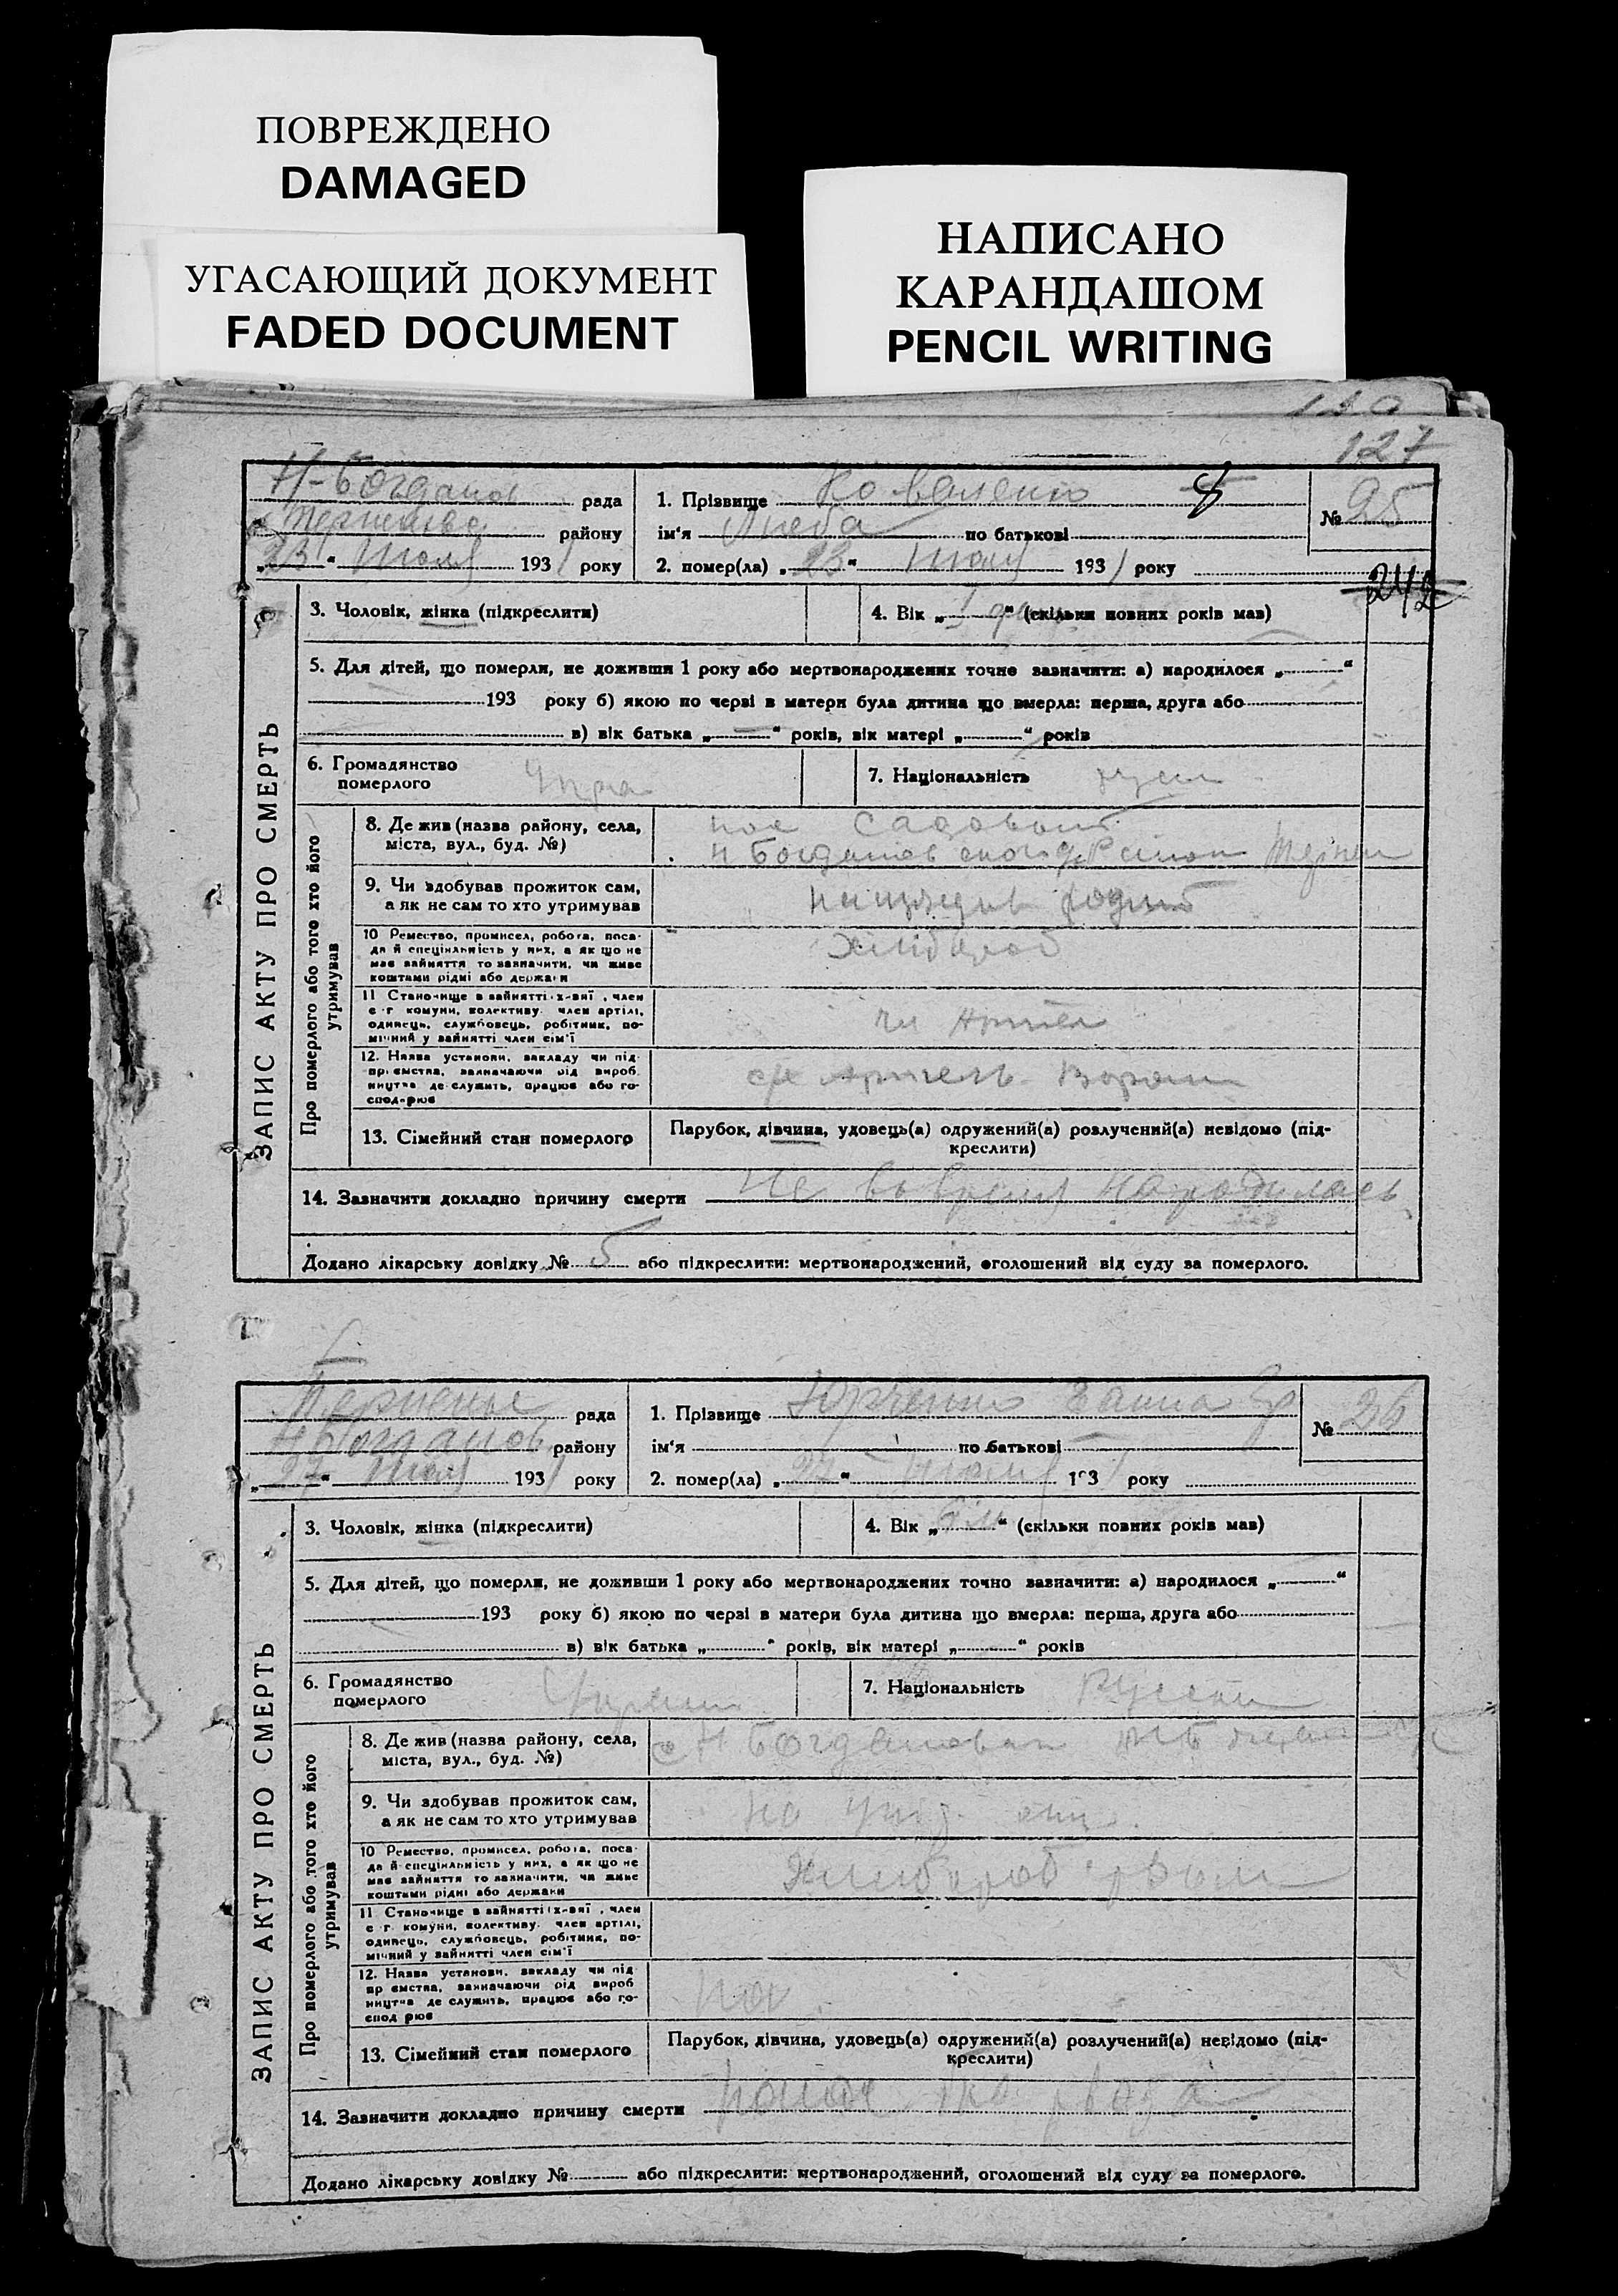 ПОВРЕЖДЕНО
DAMAGED
УГАСАЮЩИЙ ДОКУМЕНТ
FADED DOCUMENT
НАПИСАНО
КАРАНДАШОМ
PENCIL WRITING
127
Н-Богданов рада
району
"23" Июля 1931 року
1. Прізвище Коваленко
ім'я Люба по батькові
2. помер(ла) "23" Июля 1931 року
№ 25
242
ЗАПИС АКТУ ПРО СМЕРТЬ
3. Чоловік, жінка (підкреслити)
4. Вік „ “ (скільки повних років мав)
5. Для дітей, що померли, не доживши 1 року або мертвонароджених точно зазначити: а) народилося „ “
193 року б) якою по черзі в матери була дитина що вмерла: перша, друга або
в) вік батька „ “ років, вік матері „ “ років
6. Громадянство
померлого Укра
7. Національність русск
Про померлого або того хто його
утримував
8. Де жив (назва району, села,
міста, вул., буд. №)
пос Садовый
Н Богданов
9. Чи здобував прожиток сам,
а як не сам то хто утримував
10 Ремество, промисел, робота, поса-
да й спеціяльність у них, а як що не
має зайняття то зазначити, чи живе
коштами рідні або держави
Хлибороб
11 Становище в зайнятті: х-вяї, член
с.-г. комуни, колективу. член артілі,
одинець, службовець, робітник, по-
мічний у зайнятті член сім'ї
чл Артел
12. Назва установи, закладу чи під-
приємства, зазначаючи рід вироб.
ництва де служить, працює або го-
сподарює
с/х Артель
13. Сімейний стан померлого
Парубок, дівчина, удовець(а) одружений(а) розлучений(а) невідомо (під-
креслити)
14. Зазначити докладно причину смерти Не во время народилась
Додано лікарську довідку № 5 або підкреслити: мертвонароджений, оголошений від суду за померлого.
рада
Н Богданов району
"27" Июля 1931 року
1. Прізвище Юрченко
ім'я по батькові
2. помер(ла) "27" Июля 1931 року
№ 26
ЗАПИС АКТУ ПРО СМЕРТЬ
3. Чоловік, жінка (підкреслити)
4. Вік „ “ (скільки повних років мав)
5. Для дітей, що померли, не доживши 1 року або мертвонароджених точно зазначити: а) народилося „ “
193 року б) якою по черзі в матери була дитина що вмерла: перша, друга або
в) вік батька „ “ років, вік матері „ “ років
6. Громадянство
померлого
7. Національність Русски
Про померлого або того хто його
утримував
8. Де жив (назва району, села,
міста, вул., буд. №)
с Н Богдановка
9. Чи здобував прожиток сам,
а як не сам то хто утримував
10 Ремество, промисел, робота, поса-
да й спеціяльність у них, а як що не
має зайняття то зазначити, чи живе
коштами рідні або держави
Хлибороб
11 Становище в зайнятті: х-вяї, член
с.-г. комуни, колективу. член артілі,
одинець, службовець, робітник, по-
мічний у зайнятті член сім'ї
12. Назва установи, закладу чи під
приємства, зазначаючи рід вироб
ництва де служить, працює або го-
сподарює
13. Сімейний стан померлого
Парубок, дівчина, удовець(а) одружений(а) розлучений(а) невідомо (під-
креслити)
14. Зазначити докладно причину смерти
Додано лікарську довідку № або підкреслити: мертвонароджений, оголошений від суду за померлого.